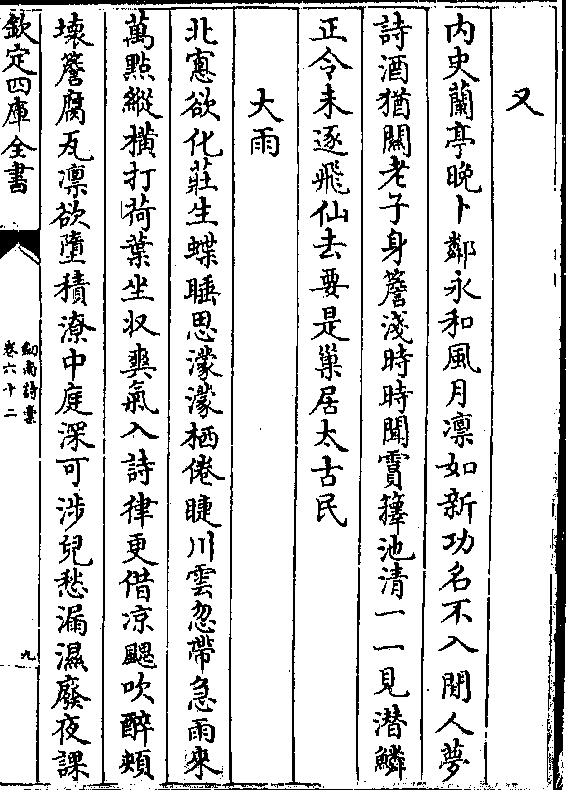 又
内史蘭亭晚卜鄰永和風月凛如新功名不入閒人夢
詩酒猶關老子身簷淺時時聞霣籜池清一一見潛鱗
正令未逐飛仙去要是巢居太古民
大雨
北窻欲化莊生蝶睡思濛濛栖倦睫川雲忽帶急雨來
萬點縱横打荷葉坐收爽氣入詩律更借凉颸吹醉頰
壞簷腐瓦凛欲墮積潦中庭深可涉兒愁漏濕廢夜課
欽定四庫全書
劔南詩稾
卷六十二
九